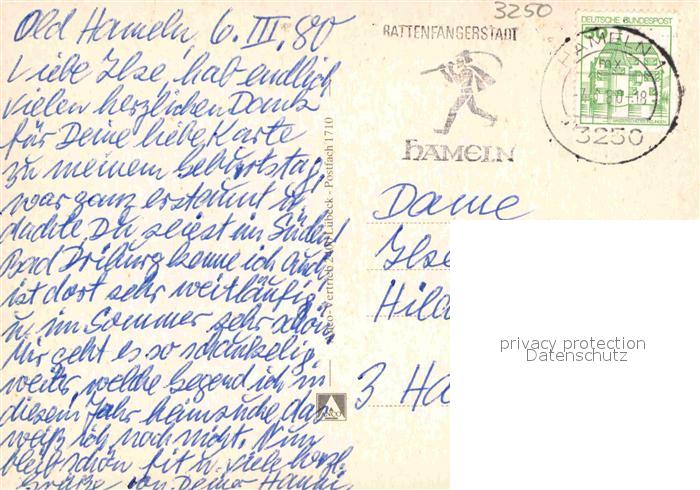 Old Hameln, 6.III.80
Liebe Ilse, hab endlich
vielen herzlichen Dank
für Deine liebe Karte
zu meinem Geburtstag,
war ganz erstaunt u.
dachte Du seiest im Süden!
Bad Driburg kenne ich auch,
ist dort sehr weitläufig
u. im Sommer sehr schön
Mir geht es so schaukelig
weiter, welche Gegend ich in
diesem Jahr heimsuche, das
weiß ich noch nicht. Nun
bleib schön fit u. viele herzl.
Grüße von Deiner Hanni
3250
RATTENFÄNGERSTADT
HAMELN
DEUTSCHE BUNDESPOST
HAMELN 1
-18
3250
Postfach 1710
Lübeck
Dame
Ilse
Hild
3 Ha
privacy protection
Datenschutz